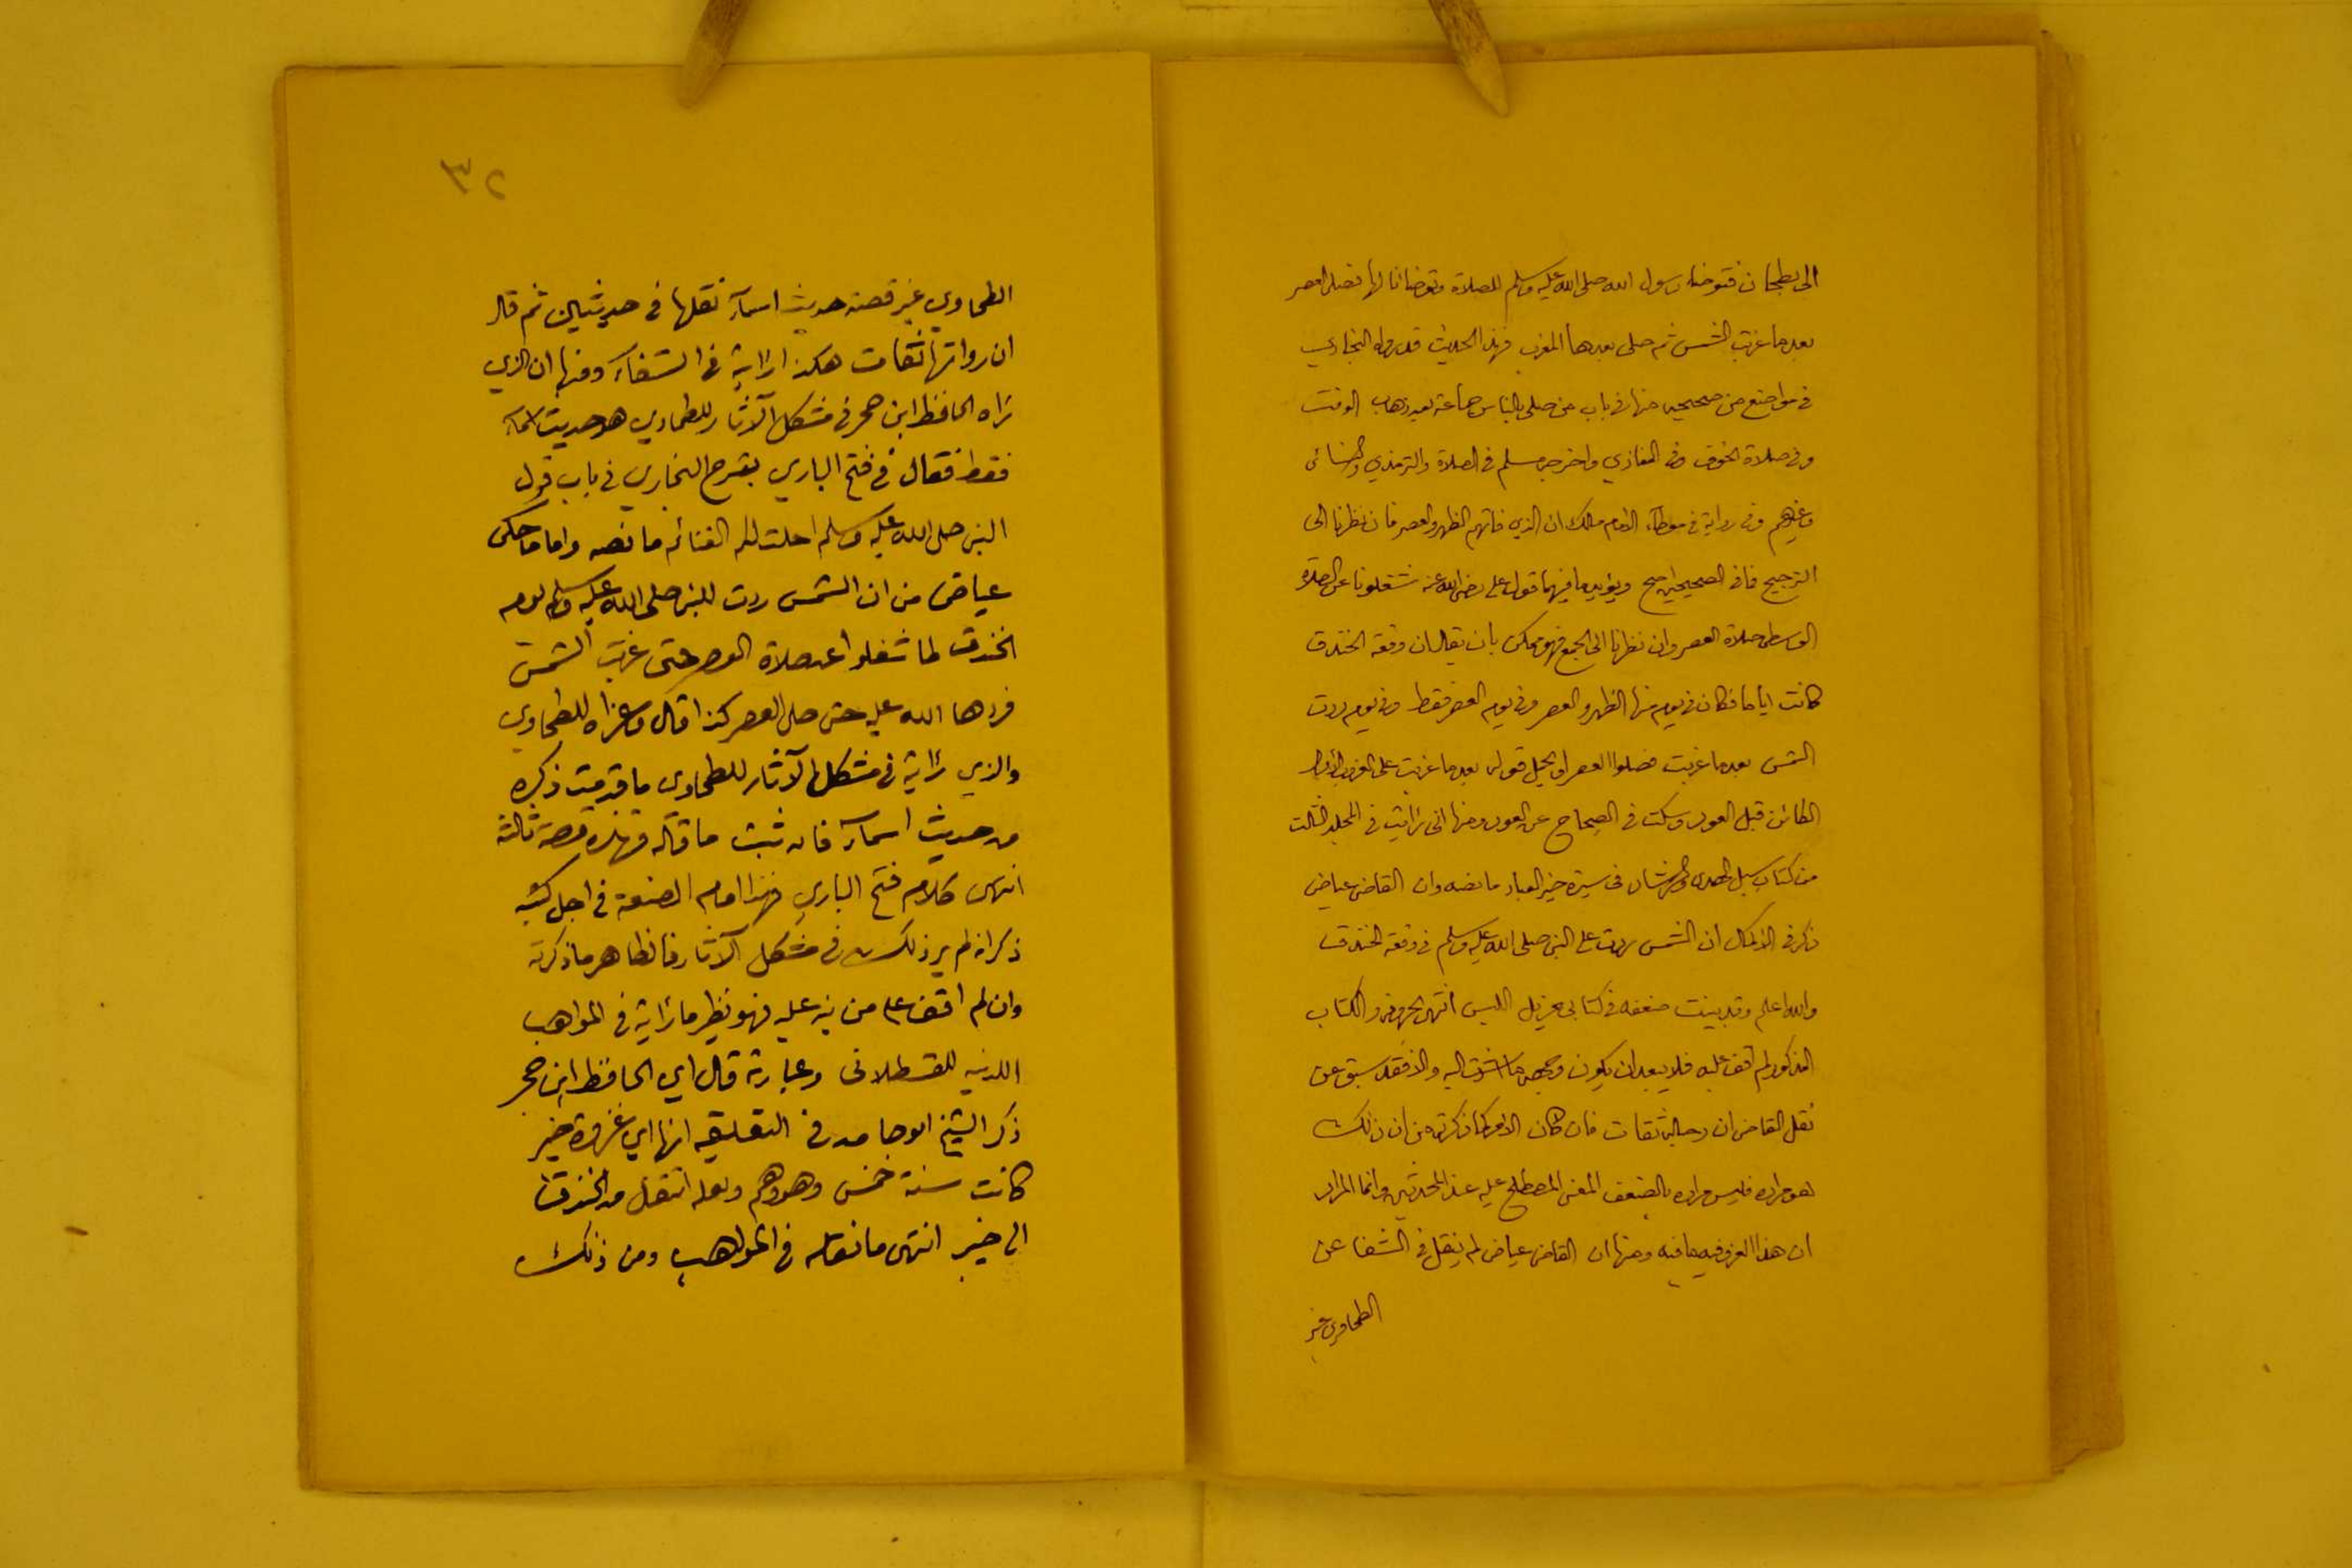 الى بطحان فتوضا رسول الله صلى الله عليه وسلم للصلاة وتوضانا لها فصلى العصر
بعد ما غربت الشمس ثم صلى بعدها المغرب فهذا الحديث قد رواه البخاري
في مواضع من صحيحه منها في باب من صلى بالناس جماعة بعد ذهاب الوقت
وفي صلاة الخوف وفي المغازي واخرجه مسلم في الصلاة والترمذي والنسائى
وغيرهم وفي رواية في موطاء الامام مالك ان الذي فاتهم الظهر والعصر فان نظرنا الى
الترجيح فما في الصحيحين اصح ويؤيد ما فيهما قول علي رضي الله عنه شغلونا عن الصلاة
الوسطى صلاة العصر وان نظرنا الى الجمع فهو ممكن بان يقال ان وقعة الخندق
كانت اياما فكان في يوم منها الظهر والعصر وفي يوم العصر فقط وفي يوم ردت
الشمس بعد ما غربت فصلوا العصر او يحمل قوله بعد ما غربت على الغروب الاول
الكائن قبل العود وسكت في الصحاح عن العود ومنها اني رايت في المجلد الثالث
من كتاب سبل الهدى والرشاد في سيرة خير العباد ما نصه وان القاضي عياض
ذكر في الاكمال ان الشمس ردت على النبي صلى الله عليه وسلم في وقعة الخندق
والله اعلم وقد بينت ضعفه في كتابي مزيل اللبس انتهى بحروفه والكتاب
المذكور لم اقف عليه فلا يبعد ان يكون وجهه ما اشرت اليه والا فقد سبق عن
نقل القاضي ان رجاله ثقات فان كان الامر كما ذكرته من ان ذلك
هو مراده فليس مراده بالضعف المعنى المصطلح عليه عند المحدثين وانما المراد
ان هذا العزو فيه ما فيه ومنها ان القاضي عياض لم ينقل في الشفا عن
الطحاوي غير
٣٢
الطحاوي غير قصة حديث اسمآء نقلها في حديثين ثم قال
ان رواتها ثقات هكذا رايته في الشفاء ومنها ان الذي
راه الحافظ ابن حجر في مشكل الآثار للطحاوي هو حديث اسمآء
فقط فقال في فتح الباري بشرح البخاري في باب قول
النبي صلى الله عليه وسلم احلت لكم الغنائم ما نصه واما ما حكى
عياض من ان الشمس ردت للنبي صلى الله عليه وسلم يوم
الخندق لما شغلوا عن صلاة العصر حتى غربت الشمس
فردها الله عليه حتى صلى العصر كذا قال وعزاه للطحاوي
والذي رايته في مشكل الآثار للطحاوى ما قدمت ذكره
من حديث اسمآء فان ثبت ما قاله فهذه قصة ثالثة
انتهى كلام فتح الباري فهذا امام الصنعة في اجل كتبه
ذكر انه لم ير ذلك في مشكل الآثار فالظاهر ما ذكرته
وان لم اقف على من نبه عليه فهو نظير ما رايته في المواهب
اللدنيه للقسطلانى وعبارته قال اي الحافظ ابن حجر
ذكر الشيخ ابو حامد في التعليقه انها اي غزوة خيبر
كانت سنة خمس وهو وهم ولعله انتقل من الخندق
الى خيبر انتهى ما نقله في المواهب ومن ذلك